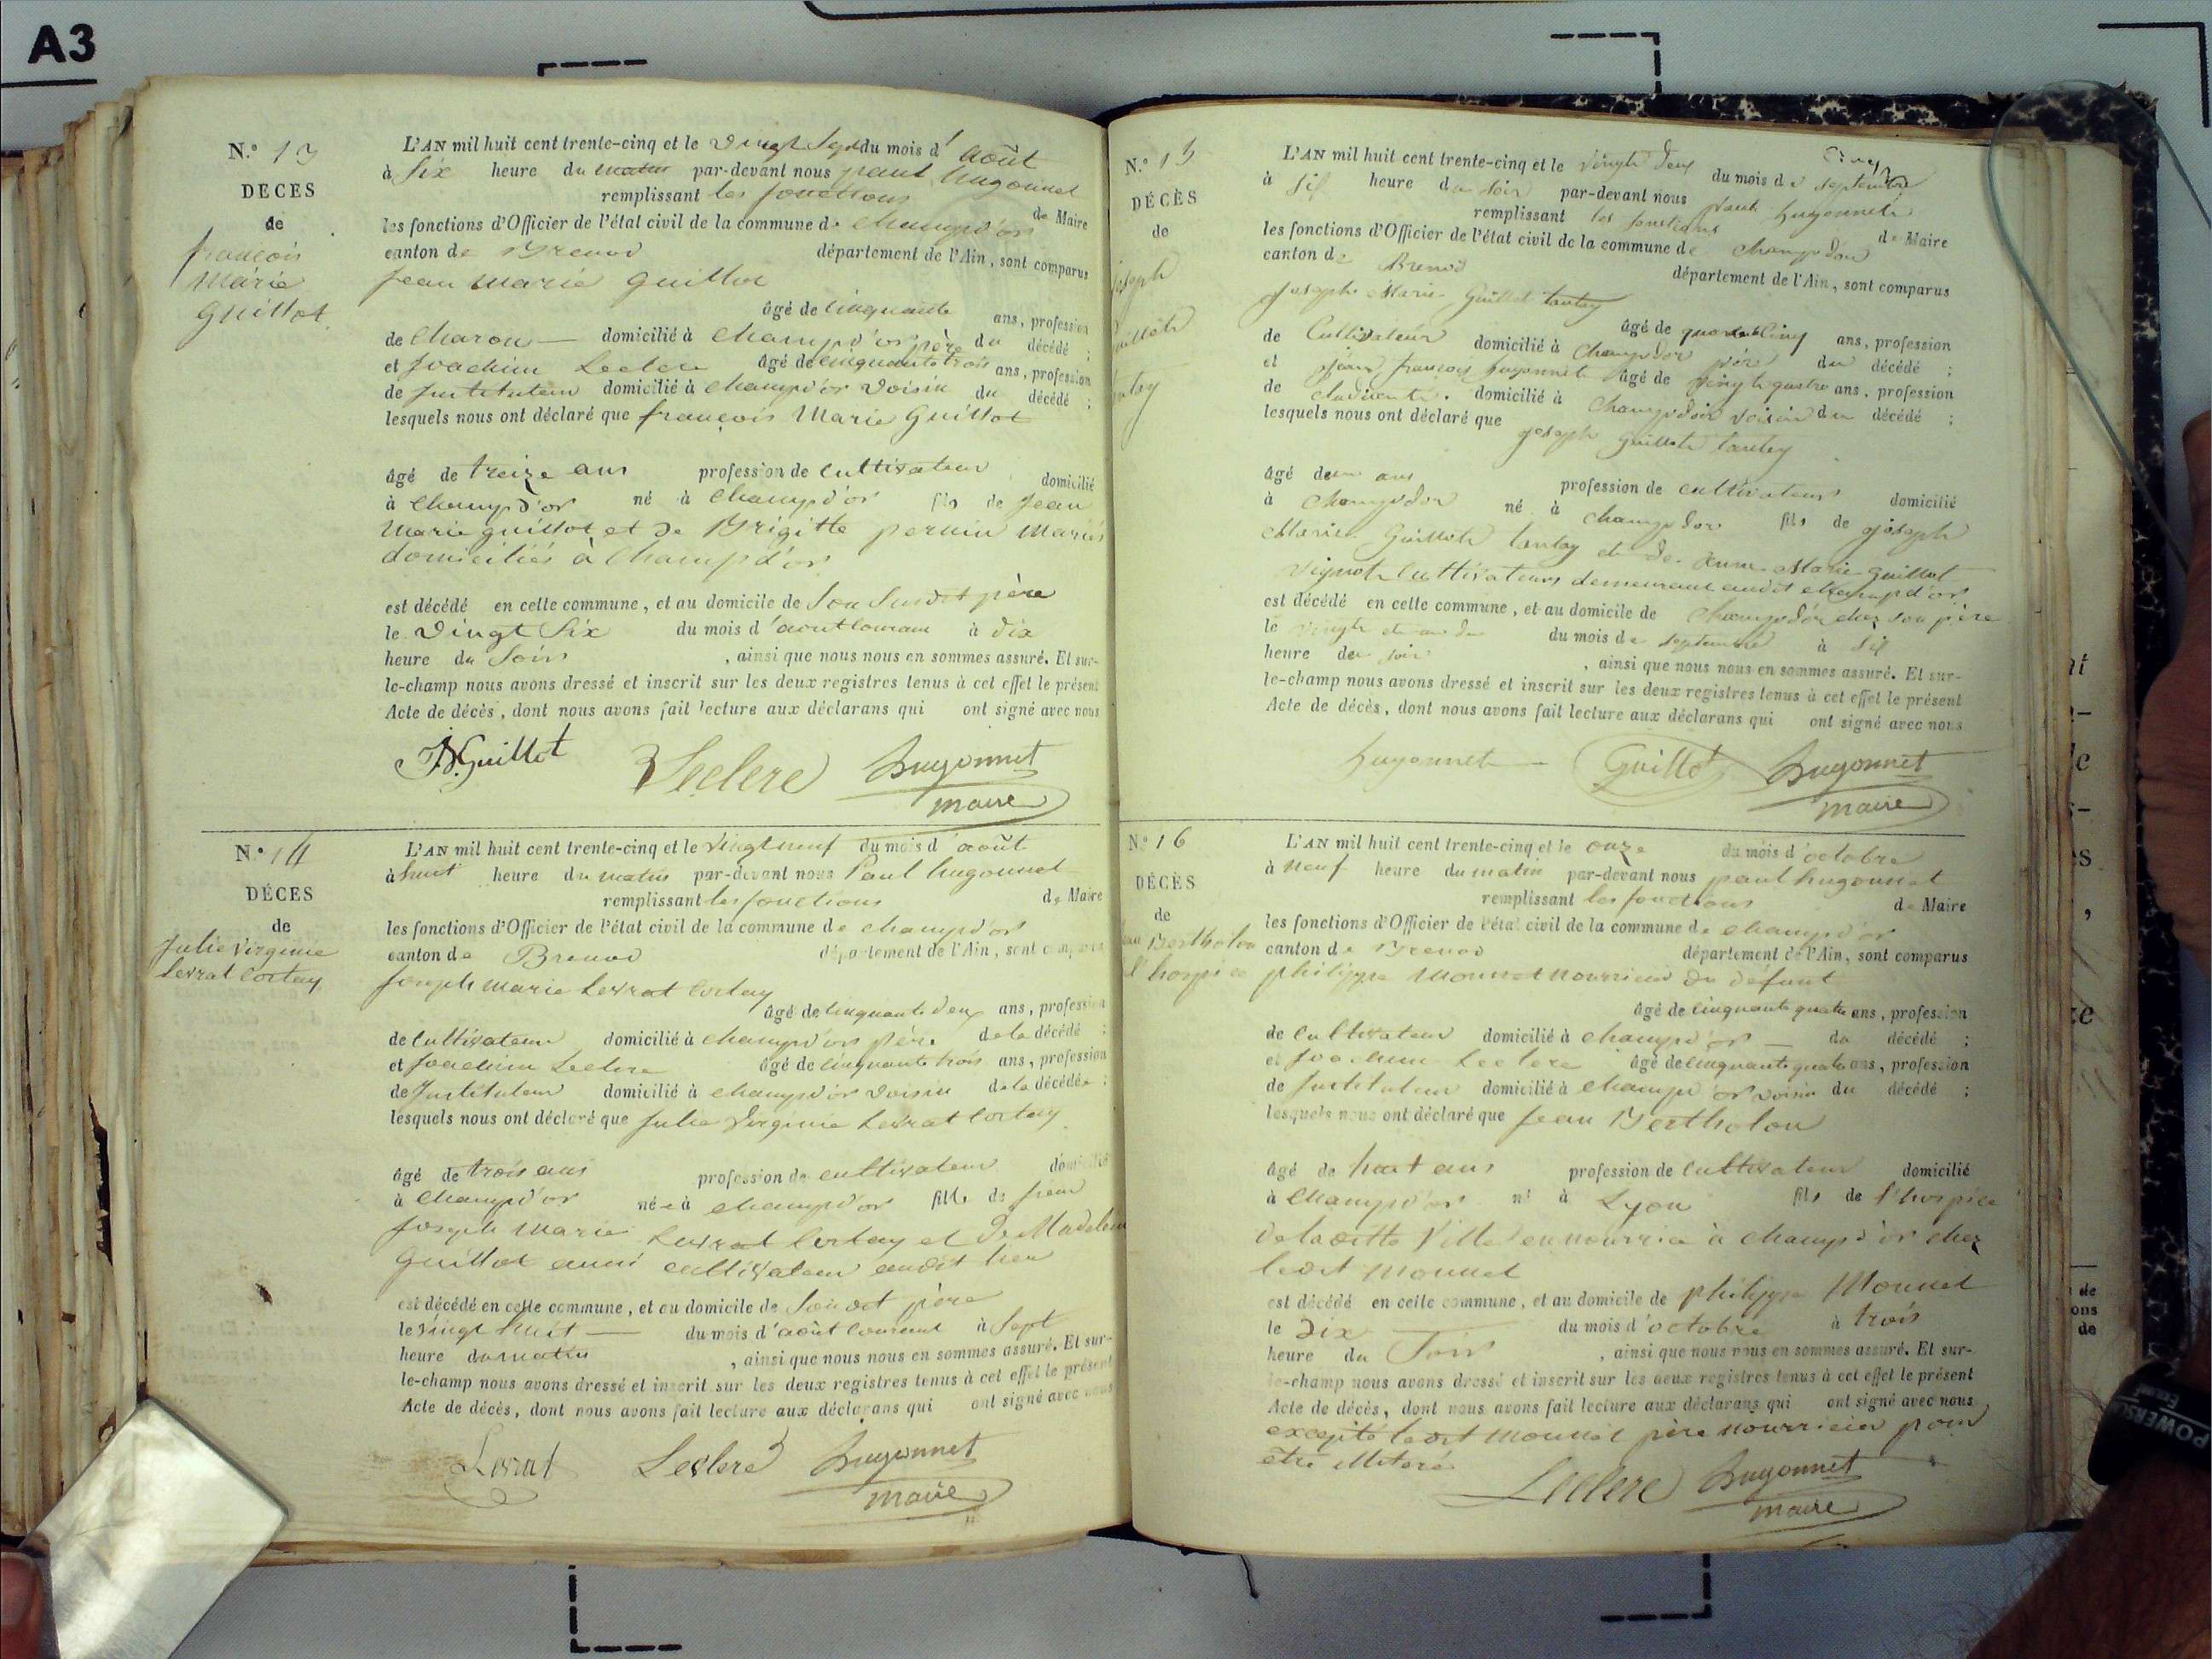 A3
N.º 13
DÉCES
de
françois
Marie
Guillot
L'AN mil huit cent trente-cinq et le vingt Sept du mois d'août
à Six heure du matin par-devant nous paul hugonnet
remplissant les fonctions de Maire
les fonctions d'Officier de l'état civil de la commune de Champd'or
canton de Brenod département de l'Ain, sont comparus
Jean Marie Guillot
âgé de Cinquante ans, profession
de Charon domicilié à Champd'or père du décédé ;
et Joachim Leclere âgé de Cinquante trois ans, profession
de Instituteur domicilié à Champd'or voisin du décédé ;
lesquels nous ont déclaré que françois Marie Guillot
âgé de treize ans profession de Cultivateur domicilié
à Champd'or né à Champd'or fils de Jean
Marie guillot et de Brigitte perrin Mariés
domiciliés à Champd'or
est décédé en cette commune, et au domicile de Son Susdit père
le vingt Six du mois d'aout courant à dix
heure du Soir , ainsi que nous nous en sommes assuré. Et sur-
le-champ nous avons dressé et inscrit sur les deux registres tenus à cet effet le présent
Acte de décès, dont nous avons fait lecture aux déclarans qui ont signé avec nous
Guillot Leclere hugonnet
maire
N.º 14
DÉCES
de
Julie Virginie
Levrat Cortay
L'AN mil huit cent trente-cinq et le vingt neuf du mois d'août
à huit heure du matin par-devant nous Paul hugonnet
remplissant les fonctions de Maire
les fonctions d'Officier de l'état civil de la commune de champd'or
canton de Brenod département de l'Ain, sont comparus
Joseph Marie Levrat Cortay
âgé de Cinquante deux ans, profession
de Cultivateur domicilié à champd'or père de la décédé ;
et Joachim Leclere âgé de Cinquante trois ans, profession
de Instituteur domicilié à champd'or voisin de la décédée ;
lesquels nous ont déclaré que Julie Virginie Levrat Cortay
âgé de trois ans profession de cultivateur domicilié
à Champd'or née à champd'or fille de
Joseph Marie Levrat Cortay et de Madelene
Guillot aussi cultivateur audit lieu
est décédé en cette commune, et au domicile de Son dit père
le vingt huit du mois d'août courant à Sept
heure du matin , ainsi que nous nous en sommes assuré. Et sur-
le-champ nous avons dressé et inscrit sur les deux registres tenus à cet effet le présent
Acte de décès, dont nous avons fait lecture aux déclarans qui ont signé avec nous
Levrat Leclere hugonnet
maire
N.º 15
DÉCÈS
de
joseph
guillot
tantay
L'AN mil huit cent trente-cinq et le vingt Cinq du mois de septembre
à six heure du soir par-devant nous paul hugonnet
remplissant les fonctions de Maire
les fonctions d'Officier de l'état civil de la commune de Champdor
canton de Brenod département de l'Ain, sont comparus
Joseph Marie Guillot tantay
âgé de quarante Cinq ans, profession
de Cultivateur domicilié à Champdor père du décédé ;
et jean françois hugonnet âgé de vingt quatre ans, profession
de domicilié à Champdor voisin du décédé ;
lesquels nous ont déclaré que joseph guillot tantay
âgé de un ans profession de cultivateur domicilié
à Champdor né à Champdor fils de joseph
Marie Guillot tantay et de Marie guillot
Vignot Cultivateurs demeurant audit champd'or
est décédé en cette commune, et au domicile de Champd'or chez son père
le vingt du mois de septembre à six
heure de soir , ainsi que nous nous en sommes assuré. Et sur-
le-champ nous avons dressé et inscrit sur les deux registres tenus à cet effet le présent
Acte de décès, dont nous avons fait lecture aux déclarans qui ont signé avec nous
hugonnet Guillot hugonnet
maire
N.º 16
DÉCÈS
de
Bertholon
l'hospice
L'AN mil huit cent trente-cinq et le onze du mois d'octobre
à neuf heure du matin par-devant nous paul hugonnet
remplissant les fonctions de Maire
les fonctions d'Officier de l'état civil de la commune de champd'or
canton de Brenod département de l'Ain, sont comparus
philippe Monnet nourricier du défunt
âgé de Cinquante quatre ans, profession
de Cultivateur domicilié à champd'or du décédé ;
et Joachim Leclere âgé de Cinquante quatre ans, profession
de Instituteur domicilié à champd'or voisin du décédé ;
lesquels nous ont déclaré que Jean Bertholon
âgé de huit ans profession de Cultivateur domicilié
à Champd'or né à Lyon fils de l'hospice
de la dite Ville en nourrice à champd'or chez
ledit Monnet
est décédé en cette commune, et au domicile de philippe Monnet
le Dix du mois d'octobre à trois
heure du Soir , ainsi que nous nous en sommes assuré. Et sur-
le-champ nous avons dressé et inscrit sur les deux registres tenus à cet effet le présent
Acte de décès, dont nous avons fait lecture aux déclarans qui ont signé avec nous
excepté ledit Monnet père nourricier pour
être illiteré
Leclere hugonnet
maire